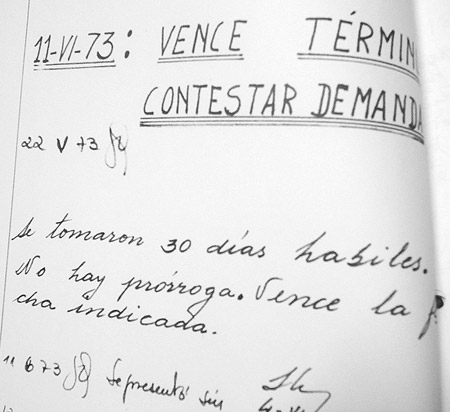 11-VI-73: VENCE TÉRMIN
CONTESTAR DEMANDA
22 V 73
Se tomaron 30 días habiles.
No hay prórroga. Vence la f
cha indicada.
11 6 73 Se presentó sin